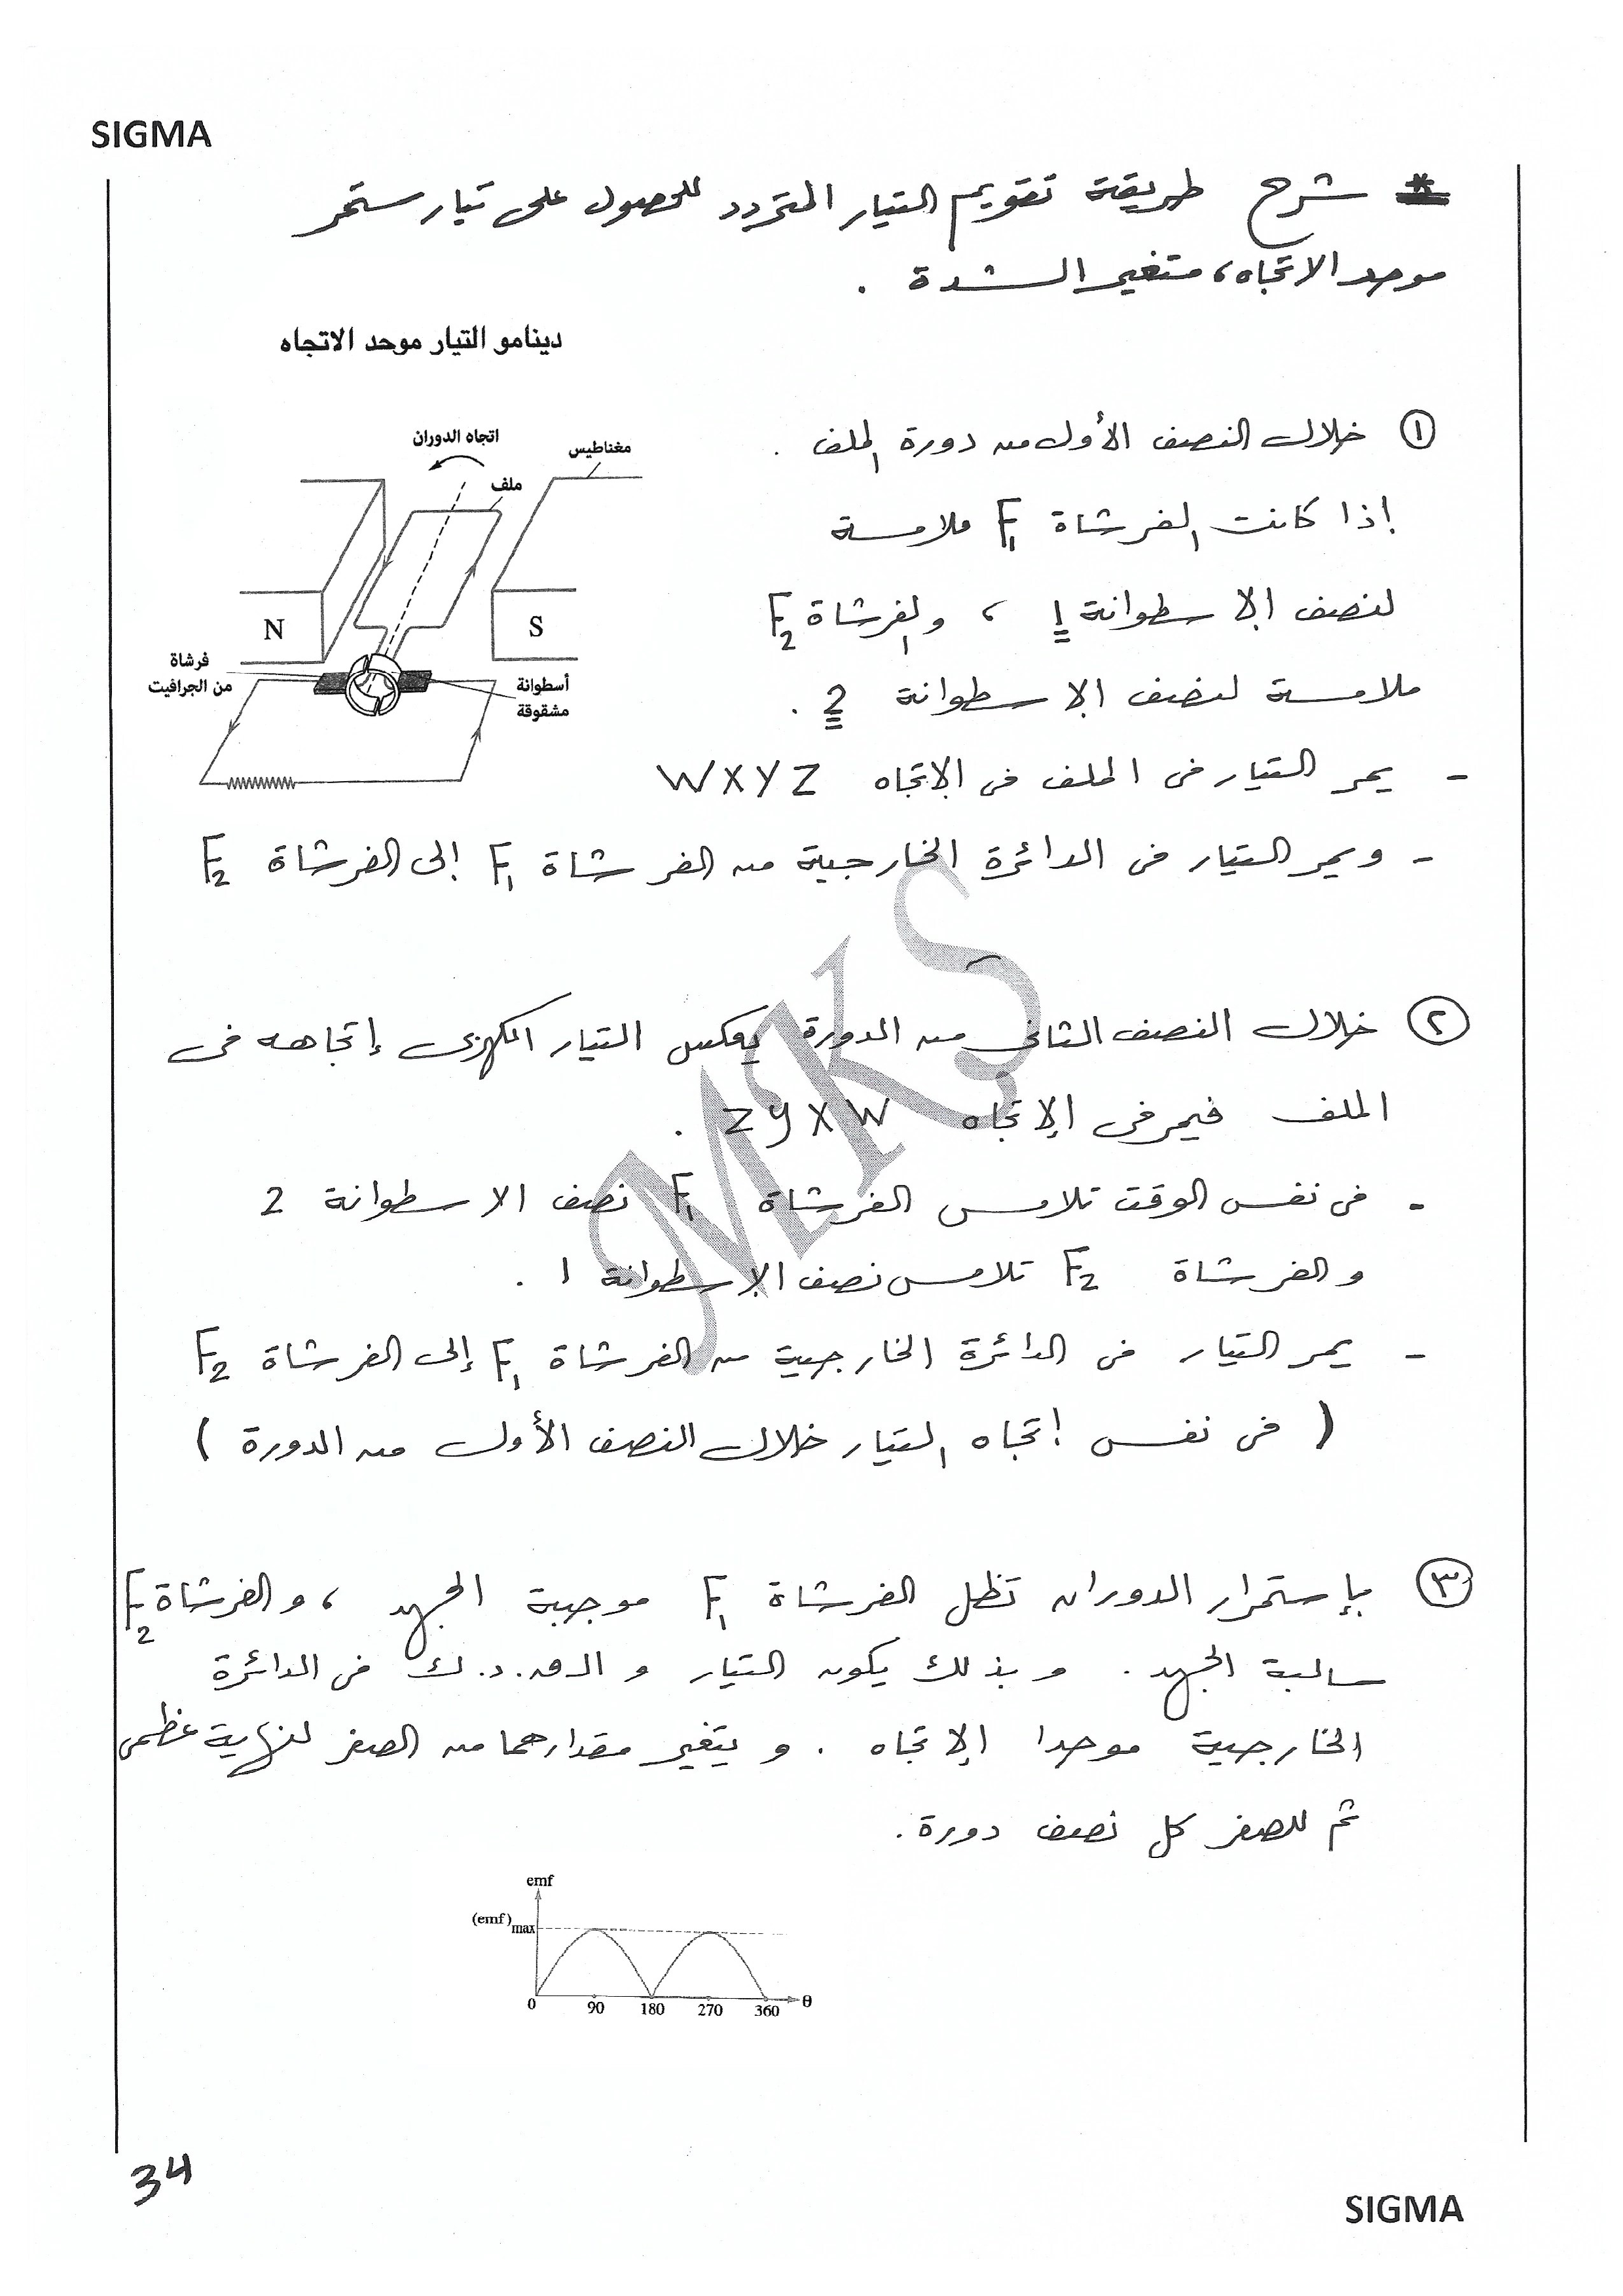 SIGMA
* شرح طريقة تقويم التيار المتردد للحصول على تيار مستمر
موحد الاتجاه، متغير الشدة .
دينامو التيار موحد الاتجاه
اتجاه الدوران
مغناطيس
ملف
N
S
فرشاة
من الجرافيت
أسطوانة
مشقوقة
١ خلال النصف الأول من دورة الملف .
إذا كانت الفرشاة F1 ملامسة
لنصف الاسطوانة 1 ، والفرشاة F2
ملامسة لنصف الاسطوانة 2 .
- يمر التيار فى الملف فى الإتجاه WXYZ
- ويمر التيار فى الدائرة الخارجية من الفرشاة F1 إلى الفرشاة F2
٢ خلال النصف الثانى من الدورة يعكس التيار الكهربى إتجاهه فى
الملف فيمر فى الإتجاه ZYXW .
- فى نفس الوقت تلامس الفرشاة F1 نصف الاسطوانة 2
والفرشاة F2 تلامس نصف الاسطوانة 1 .
- يمر التيار فى الدائرة الخارجية من الفرشاة F1 إلى الفرشاة F2
( فى نفس إتجاه التيار خلال النصف الأول من الدورة )
٣ بإستمرار الدوران تظل الفرشاة F1 موجبة الجهد ، والفرشاة F2
سالبة الجهد . وبذلك يكون التيار و الـ ق.د.ك فى الدائرة
الخارجية موحدا الإتجاه . و يتغير مقدارهما من الصفر لنهاية عظمى
ثم للصفر كل نصف دورة .
emf
(emf)max
0 90 180 270 360 θ
MKS
34
SIGMA